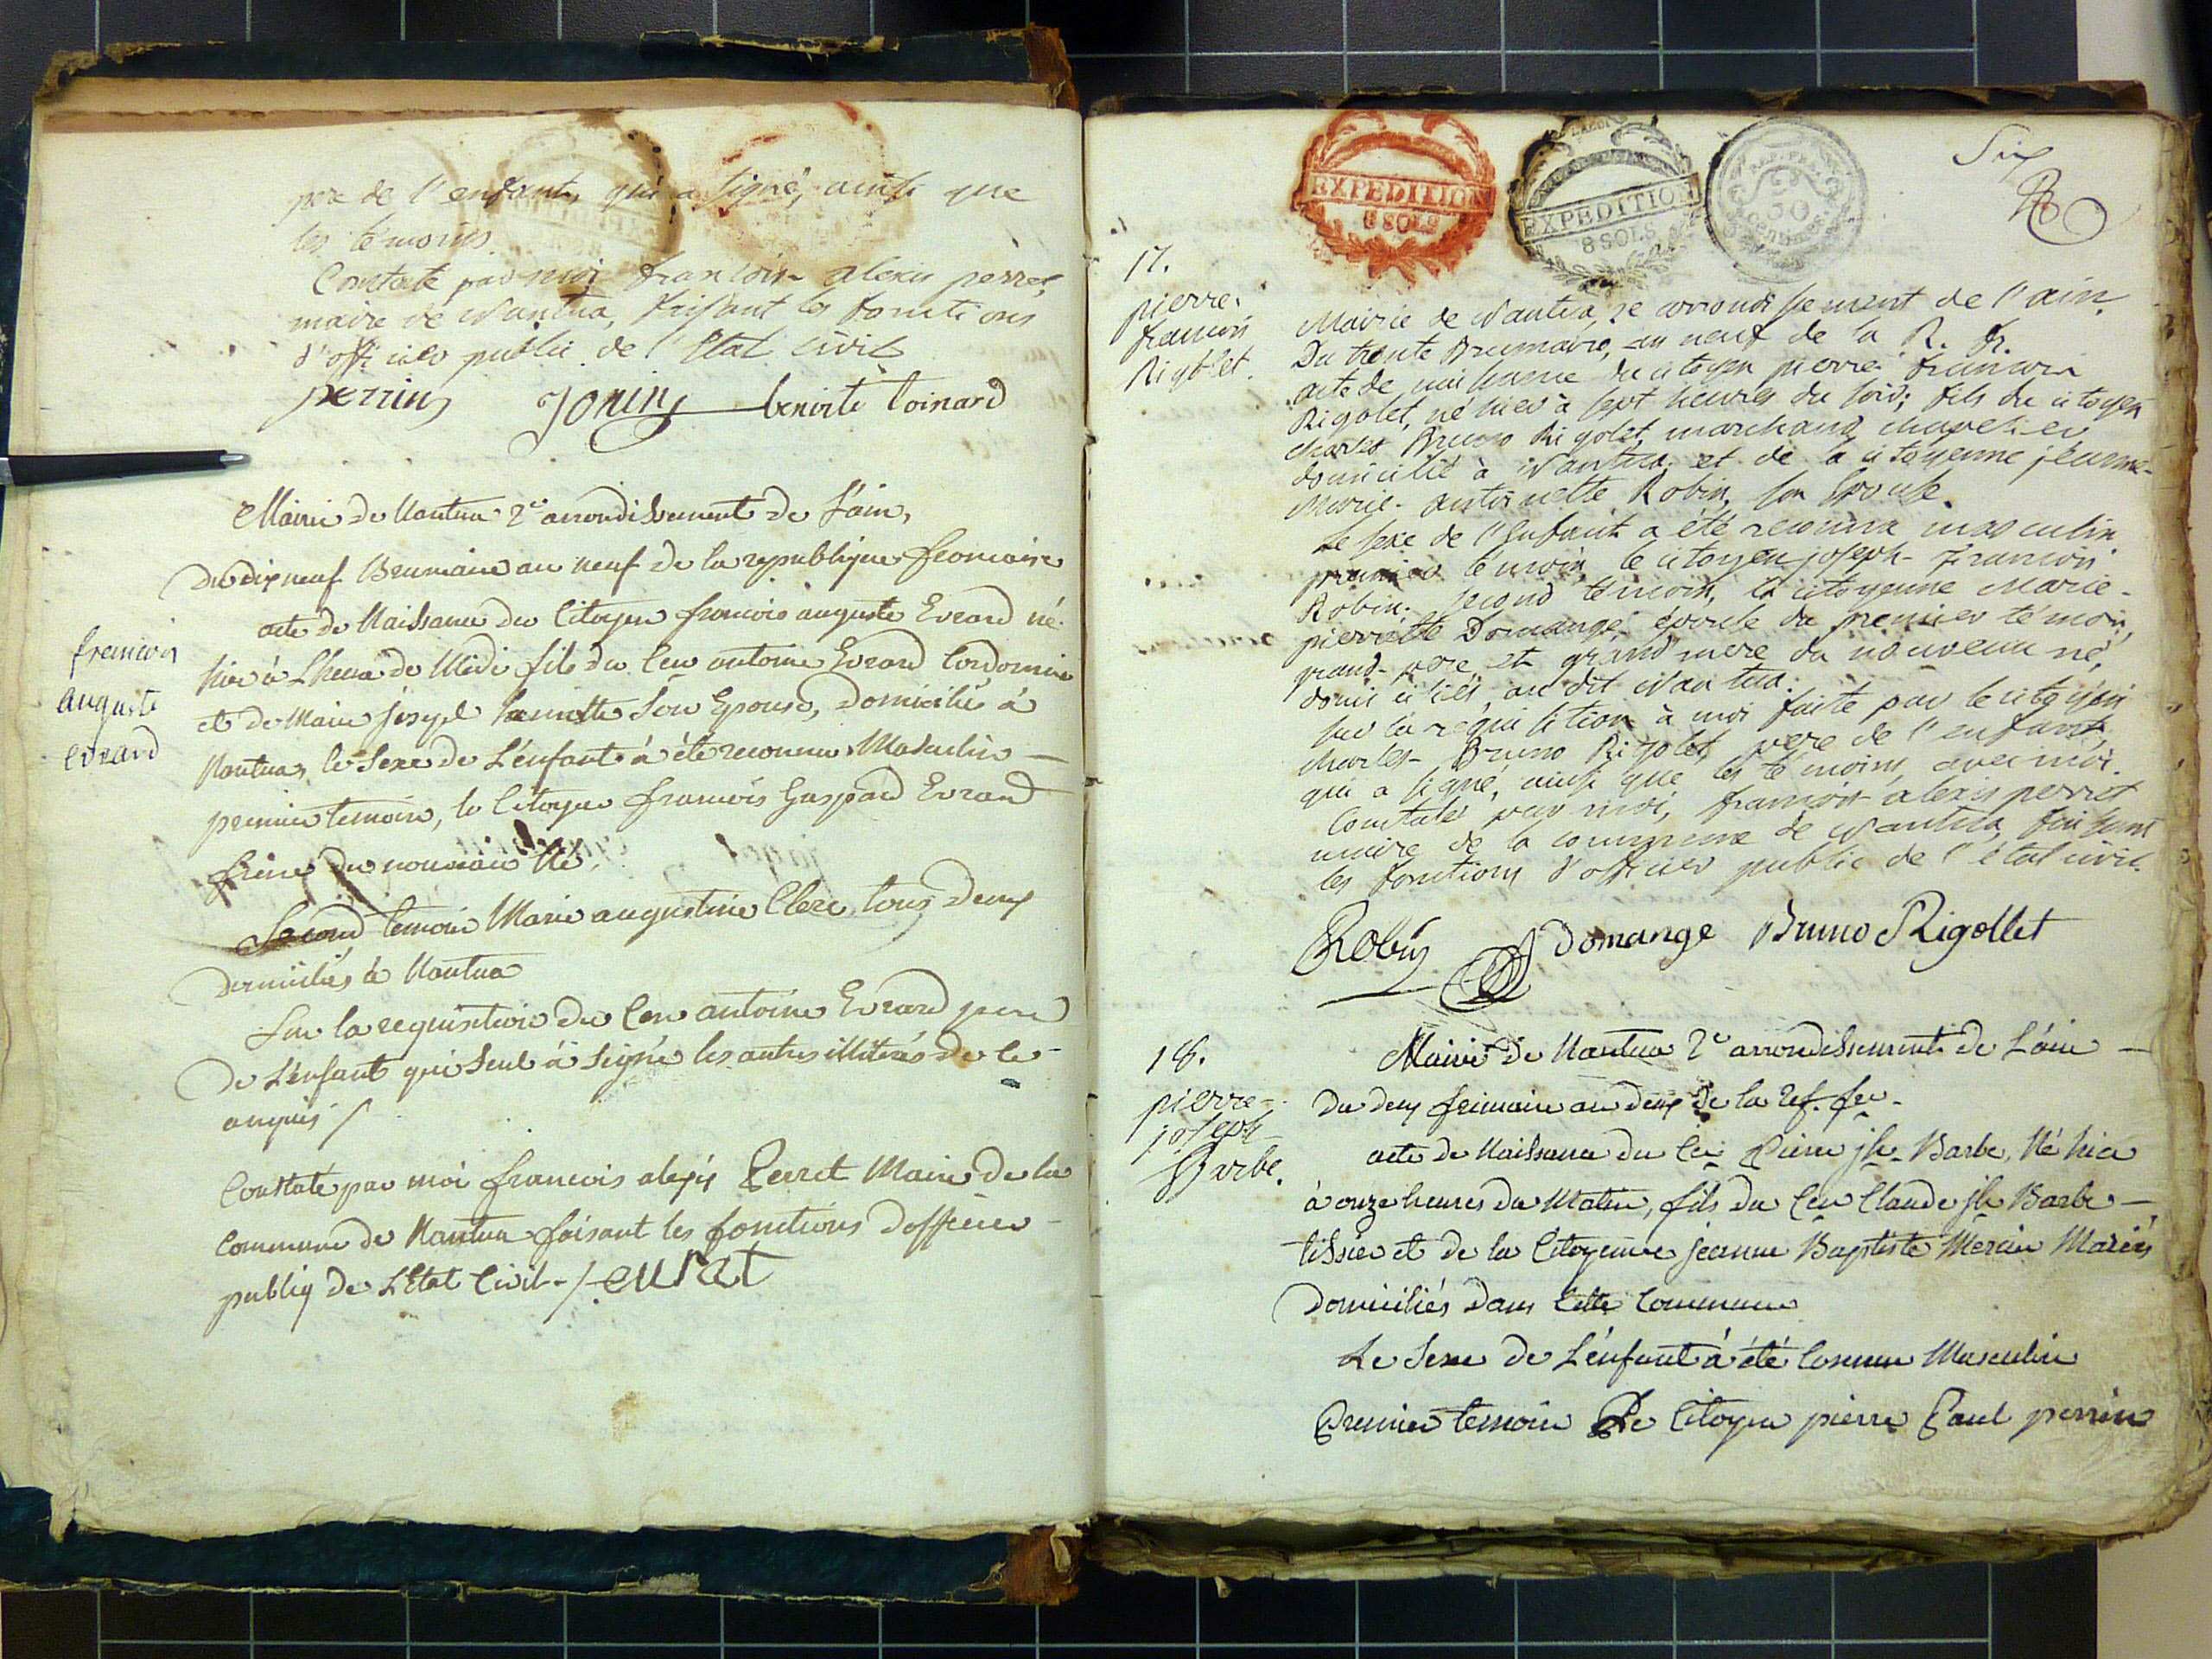 pere de l'enfant, qui a signé, ainsi que
les témoins.
Constaté par moi françois alexis perret,
maire de Nantua, faisant les fonctions
d'officier public de l'Etat civil
perrin Jonin benoite Coinard
Mairie de Nantua 2e arrondissement de L'ain,
Du dixneuf Brumaire an neuf de la republique francaise
acte de Naissance du Citoyen francois auguste Evrard né
francois
auguste
evrard
hier à L'heure de Midi fils du Cen antoine Evrard Cordonnier
et de Marie Son Epouse, Domiciliés à
Nantua, le Sexe de L'enfant à été reconnu Masculin
premier temoin, le Citoyen francois Gaspard Evrard
frere du nouveau Né.
Second temoin Marie augustine Clerc tous deux
domiciliés à Nantua
Sur la requisition du Cen antoine Evrard pere
de L'enfant qui Seul à Signé les autres illiterés de ce
enquis /
Constaté par moi francois alexis Perret Maire de la
Commune de Nantua faisant les fonctions D'officier
publiq de L'Etat Civil -/. eurat
EXPEDITION
8 SOLS
EXPEDITION
8 SOLS
REP. FRA.
50
Centimes
Six
17.
pierre
francois
Rigolet.
Mairie de Nantua, 2e arrondissement de l'ain.
Du trente Brumaire, an neuf de la R. fr.
acte de naissance du citoyen pierre francois
Rigolet, né hier à sept heures du soir; fils du citoyen
charles Bruno Rigolet, marchand chapelier
domicilié à Nantua et de la citoyenne jeanne-
Marie-antoinette Robin, son Epouse.
Le sexe de l'Enfant a été reconnu masculin
premier témoin, le citoyen joseph-francois
Robin. second témoin, la citoyenne Marie-
pierrette Domange, épouse du premier témoin,
grand-pere et grand mere du nouveau né,
domiciliés, au dit Nantua.
sur la requisition à moi faite par le citoyen
charles-Bruno Rigolet, pere de l'enfant,
qui a signé, ainsi que les témoins, avec moi.
Constaté par moi, françois-alexis perret
maire de la commune de Nantua, faisant
les fonctions d'officier public de l'état civil.
Robin Domange Bruno Rigollet
18.
pierre-
joseph
Barbe.
Mairie de Nantua 2e arrondissement de L'ain
du deux frimaire an deux de la Rep. fr.
acte de Naissance du Cen Pierre jh. Barbe, Né hier
à onze heures du Matin, fils du Cen Claude jh Barbe
tissier et de la Citoyenne jeanne Baptiste Mercier Mariés
Domiciliés dans Cette Commune
Le Sexe de L'enfant à été Connu Masculin
Premier temoin Le Citoyen pierre Paul perrin